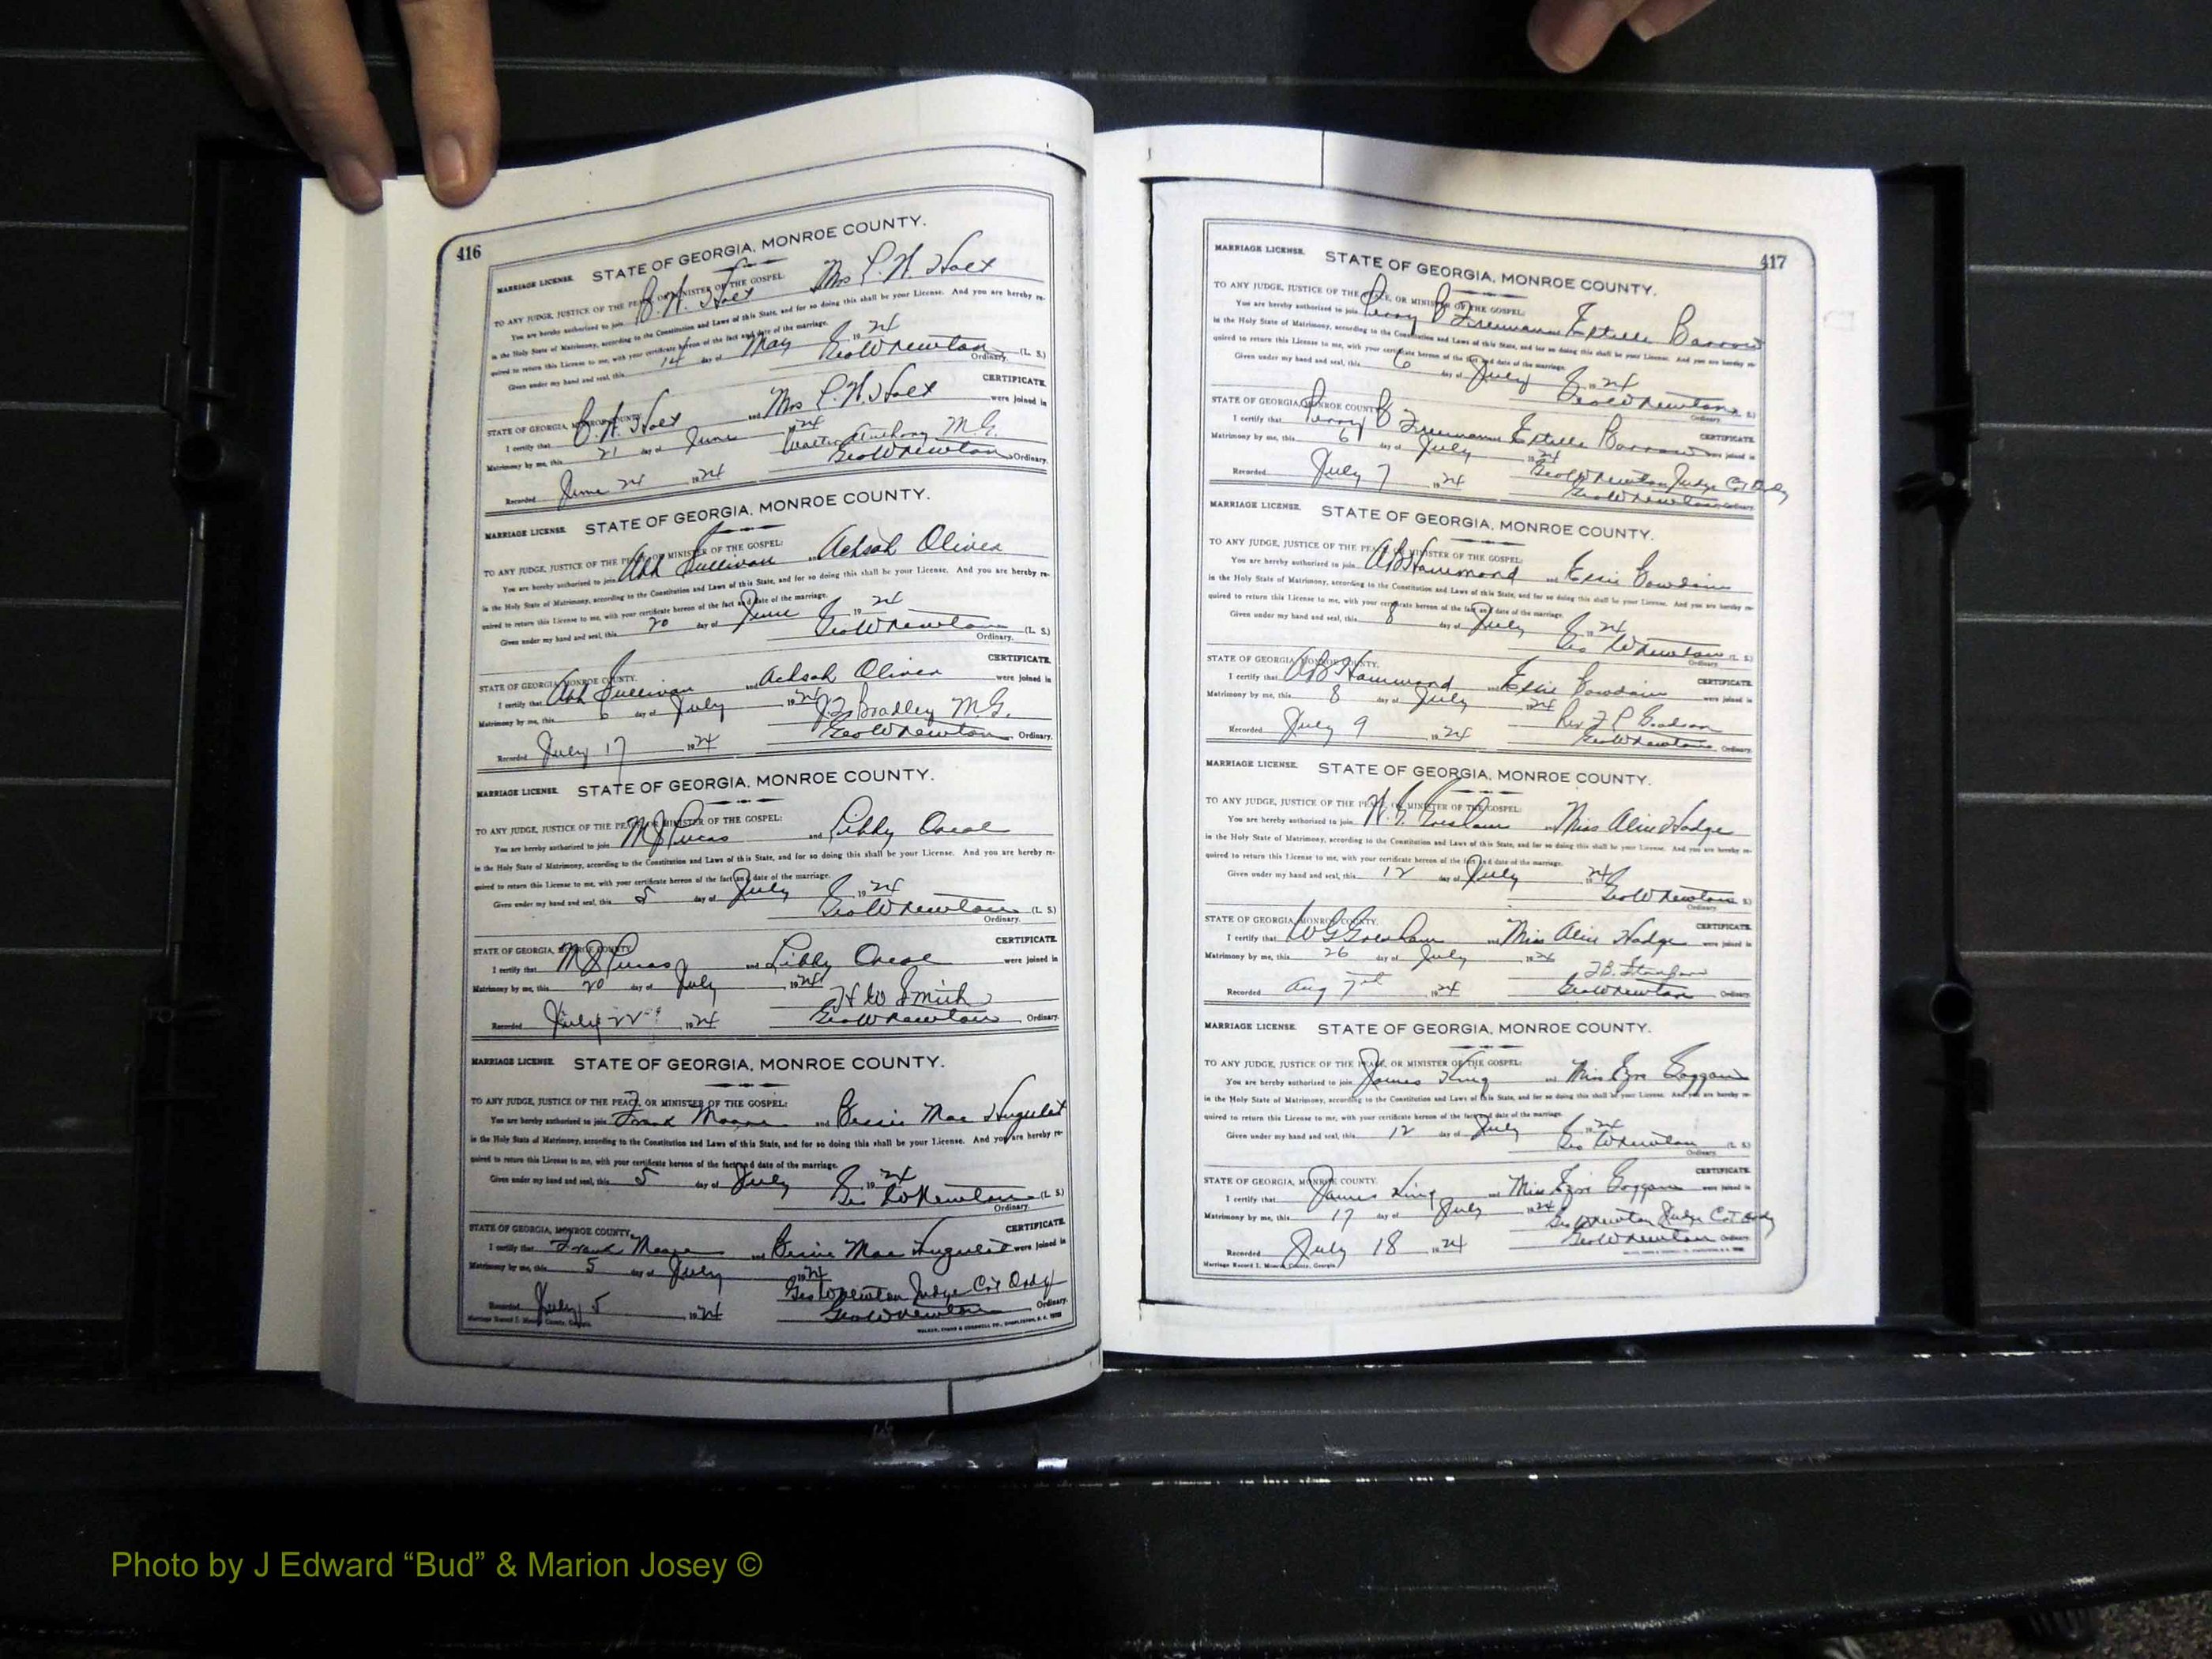 416
STATE OF GEORGIA, MONROE COUNTY.
MARRIAGE LICENSE.
TO ANY JUDGE, JUSTICE OF THE PEACE, OR MINISTER OF THE GOSPEL:
You are hereby authorized to join Holt Mrs P. N. Holt
in the Holy State of Matrimony, according to the Constitution and Laws of this State, and for so doing this shall be your License. And you are hereby re-
quired to return this License to me, with your certificate hereon of the fact and date of the marriage.
Given under my hand and seal, this 14 day of May 1924
Geo W Newton (L. S.)
Ordinary.
STATE OF GEORGIA, MONROE COUNTY. CERTIFICATE.
I certify that Holt and Mrs P. N. Holt were joined in
Matrimony by me, this 21 day of June 1924 Walter Anthony M.G.
Recorded June 24 1924 Geo W Newton Ordinary.
STATE OF GEORGIA, MONROE COUNTY.
MARRIAGE LICENSE.
TO ANY JUDGE, JUSTICE OF THE PEACE, OR MINISTER OF THE GOSPEL:
You are hereby authorized to join Ash Sullivan and Achsah Oliver
in the Holy State of Matrimony, according to the Constitution and Laws of this State, and for so doing this shall be your License. And you are hereby re-
quired to return this License to me, with your certificate hereon of the fact and date of the marriage.
Given under my hand and seal, this 20 day of June 1924
Geo W Newton (L. S.)
Ordinary.
STATE OF GEORGIA, MONROE COUNTY. CERTIFICATE.
I certify that Ash Sullivan and Achsah Oliver were joined in
Matrimony by me, this 6 day of July 1924 Bradley M.G.
Recorded July 17 1924 Geo W Newton Ordinary.
MARRIAGE LICENSE. STATE OF GEORGIA, MONROE COUNTY.
TO ANY JUDGE, JUSTICE OF THE PEACE, OR MINISTER OF THE GOSPEL:
You are hereby authorized to join M J Lucas and Libby Oneal
in the Holy State of Matrimony, according to the Constitution and Laws of this State, and for so doing this shall be your License. And you are hereby re-
quired to return this License to me, with your certificate hereon of the fact and date of the marriage.
Given under my hand and seal, this 5 day of July 1924
Geo W Newton (L. S.)
Ordinary.
STATE OF GEORGIA, MONROE COUNTY. CERTIFICATE.
I certify that M J Lucas and Libby Oneal were joined in
Matrimony by me, this 20 day of July 1924 H W Smith
Recorded July 22 1924 Geo W Newton Ordinary.
MARRIAGE LICENSE. STATE OF GEORGIA, MONROE COUNTY.
TO ANY JUDGE, JUSTICE OF THE PEACE, OR MINISTER OF THE GOSPEL:
You are hereby authorized to join Frank Moore and Bessie Mae Huguley
in the Holy State of Matrimony, according to the Constitution and Laws of this State, and for so doing this shall be your License. And you are hereby re-
quired to return this License to me, with your certificate hereon of the fact and date of the marriage.
Given under my hand and seal, this 5 day of July 1924
Geo W Newton (L. S.)
Ordinary.
STATE OF GEORGIA, MONROE COUNTY. CERTIFICATE.
I certify that Frank Moore and Bessie Mae Huguley were joined in
Matrimony by me, this 5 day of July 1924
Geo W Newton Judge Ct Ordy
Recorded July 5 1924 Geo W Newton Ordinary.
Marriage Record I. Monroe County, Georgia.
WALKER, EVANS & COGSWELL CO., CHARLESTON, S. C.
417
MARRIAGE LICENSE. STATE OF GEORGIA, MONROE COUNTY.
TO ANY JUDGE, JUSTICE OF THE PEACE, OR MINISTER OF THE GOSPEL:
You are hereby authorized to join Perry B Freeman Estelle Barrow
in the Holy State of Matrimony, according to the Constitution and Laws of this State, and for so doing this shall be your License. And you are hereby re-
quired to return this License to me, with your certificate hereon of the fact and date of the marriage.
Given under my hand and seal, this 6 day of July 1924
Geo W Newton (L. S.)
Ordinary.
STATE OF GEORGIA, MONROE COUNTY. CERTIFICATE.
I certify that Perry B Freeman Estelle Barrow were joined in
Matrimony by me, this 6 day of July 1924
Geo W Newton Judge Ct Ordy
Recorded July 7 1924 Geo W Newton Ordinary.
MARRIAGE LICENSE. STATE OF GEORGIA, MONROE COUNTY.
TO ANY JUDGE, JUSTICE OF THE PEACE, OR MINISTER OF THE GOSPEL:
You are hereby authorized to join A B Hammond and Essie Bowdoin
in the Holy State of Matrimony, according to the Constitution and Laws of this State, and for so doing this shall be your License. And you are hereby re-
quired to return this License to me, with your certificate hereon of the fact and date of the marriage.
Given under my hand and seal, this 8 day of July 1924
Geo W Newton (L. S.)
Ordinary.
STATE OF GEORGIA, MONROE COUNTY. CERTIFICATE.
I certify that A B Hammond and Essie Bowdoin were joined in
Matrimony by me, this 8 day of July 1924 Rev
Recorded July 9 1924 Geo W Newton Ordinary.
MARRIAGE LICENSE. STATE OF GEORGIA, MONROE COUNTY.
TO ANY JUDGE, JUSTICE OF THE PEACE, OR MINISTER OF THE GOSPEL:
You are hereby authorized to join W. G. Gresham and Miss Alice Hodge
in the Holy State of Matrimony, according to the Constitution and Laws of this State, and for so doing this shall be your License. And you are hereby re-
quired to return this License to me, with your certificate hereon of the fact and date of the marriage.
Given under my hand and seal, this 12 day of July 24
Geo W Newton (L. S.)
Ordinary.
STATE OF GEORGIA, MONROE COUNTY. CERTIFICATE.
I certify that W G Gresham and Miss Alice Hodge were joined in
Matrimony by me, this 26 day of July
Recorded Aug 7 1924 Geo W Newton Ordinary.
MARRIAGE LICENSE. STATE OF GEORGIA, MONROE COUNTY.
TO ANY JUDGE, JUSTICE OF THE PEACE, OR MINISTER OF THE GOSPEL:
You are hereby authorized to join James King and Miss Goggans
in the Holy State of Matrimony, according to the Constitution and Laws of this State, and for so doing this shall be your License. And you are hereby re-
quired to return this License to me, with your certificate hereon of the fact and date of the marriage.
Given under my hand and seal, this 12 day of July 1924
Geo W Newton (L. S.)
Ordinary.
STATE OF GEORGIA, MONROE COUNTY. CERTIFICATE.
I certify that James King and Miss Goggans were joined in
Matrimony by me, this 17 day of July 1924
Geo W Newton Judge Ct Ordy
Recorded July 18 1924 Geo W Newton Ordinary.
Marriage Record I. Monroe County, Georgia.
Photo by J Edward “Bud” & Marion Josey ©